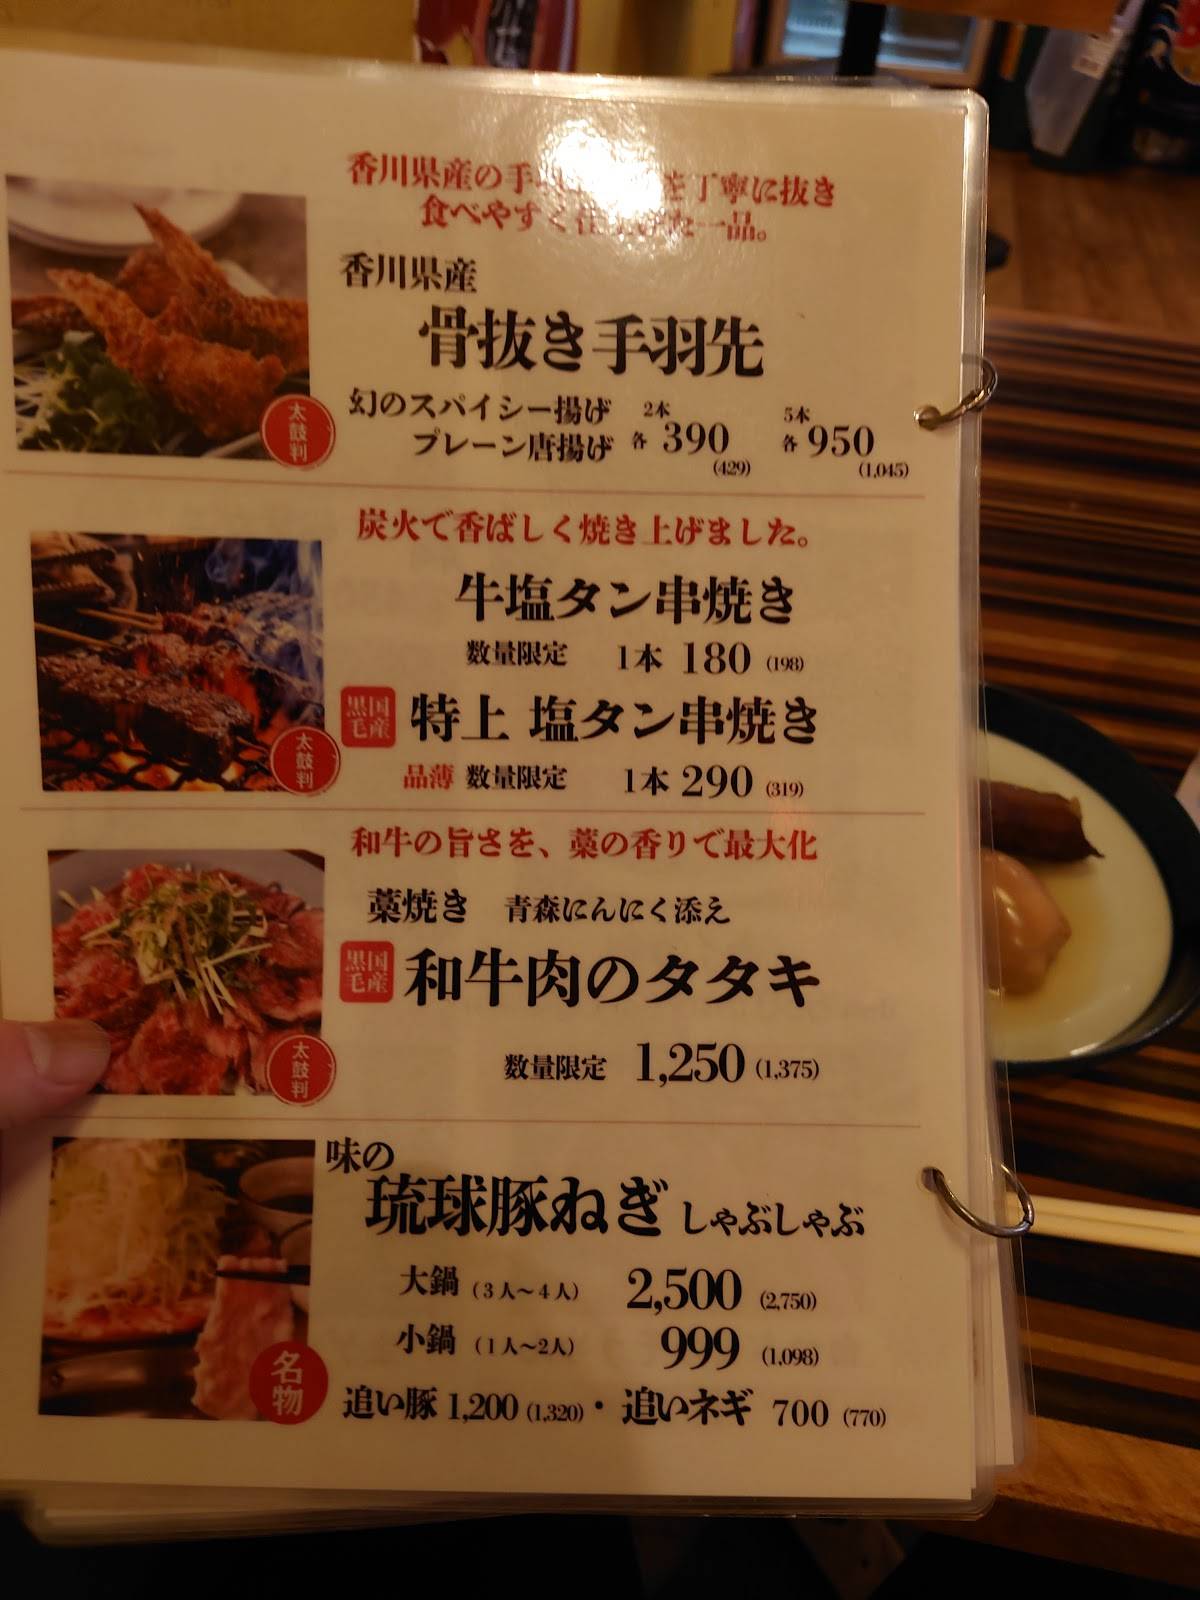 香川県産の手 を丁寧に抜き
食べやすく仕上げた一品。
香川県産
骨抜き手羽先
幻のスパイシー揚げ
プレーン唐揚げ
2本
各 390
(429)
5本
各 950
(1,045)
太鼓判
炭火で香ばしく焼き上げました。
牛塩タン串焼き
数量限定 1本 180 (198)
国産黒毛 特上 塩タン串焼き
品薄 数量限定 1本 290 (319)
太鼓判
和牛の旨さを、藁の香りで最大化
藁焼き 青森にんにく添え
国産黒毛 和牛肉のタタキ
数量限定 1,250 (1,375)
太鼓判
味の
琉球豚ねぎ しゃぶしゃぶ
大鍋 (3人〜4人) 2,500 (2,750)
小鍋 (1人〜2人) 999 (1,098)
追い豚 1,200 (1,320)・追いネギ 700 (770)
名物